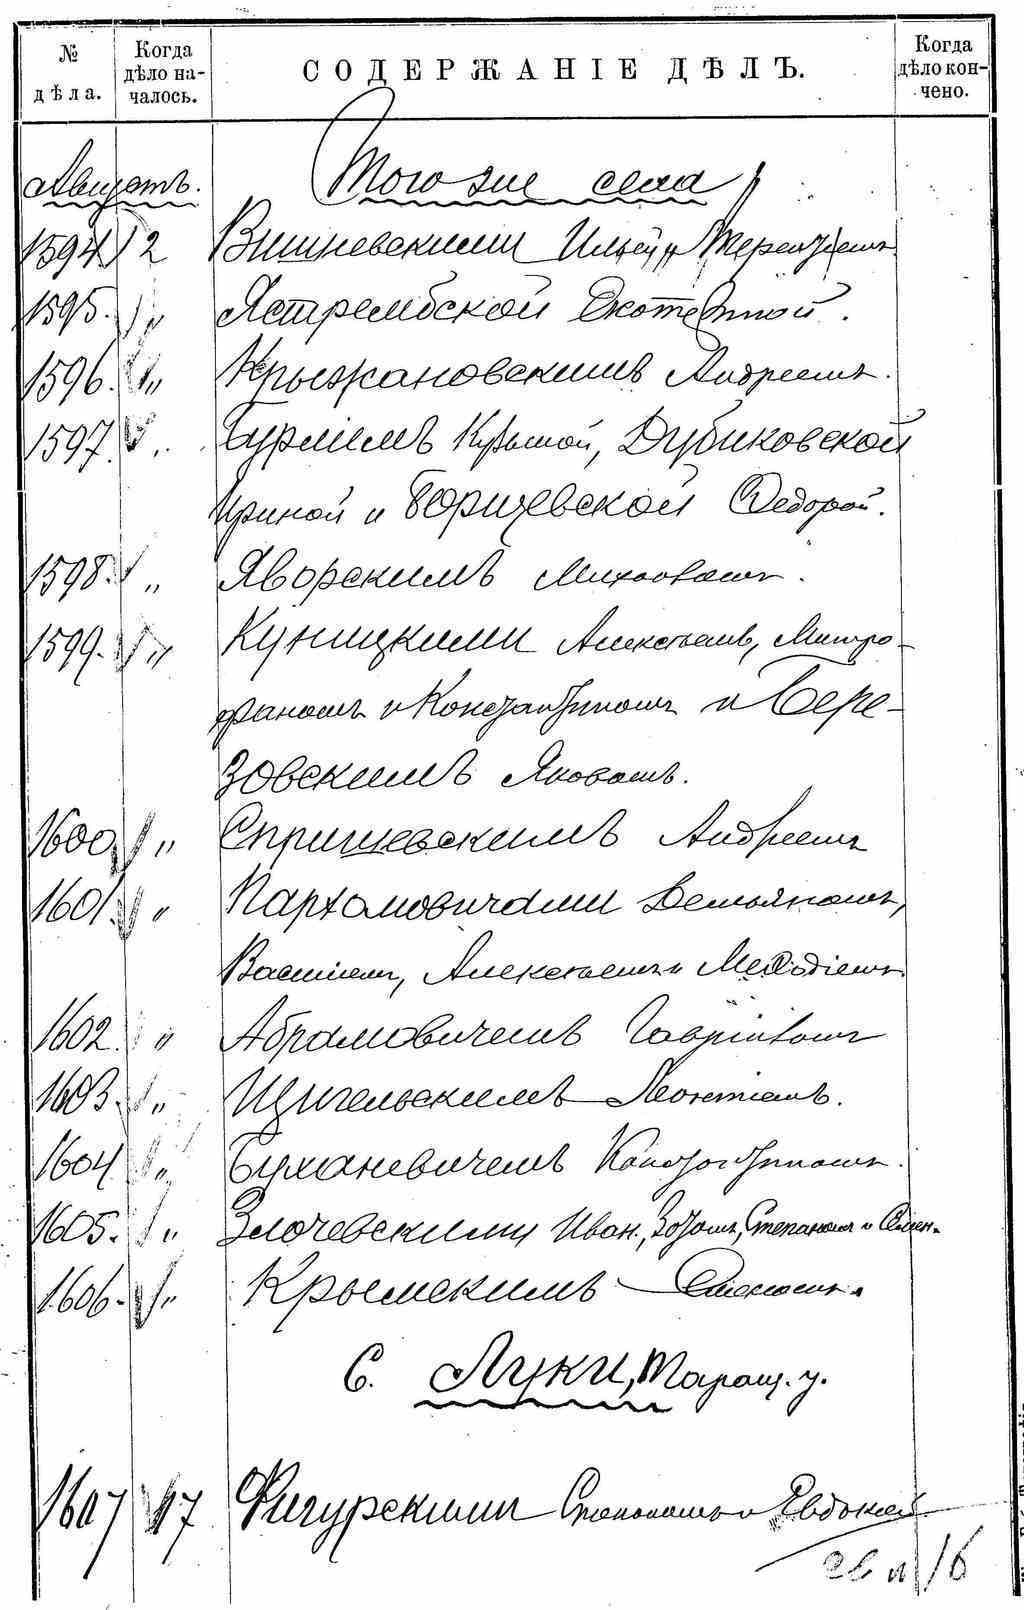 № дѣла.
Когда дѣло на-
чалось.
СОДЕРЖАНІЕ ДѢЛЪ.
Когда дѣло кон-
чено.
Августъ.
Того же села
1594 2 Вишневскими Ильей и Терентіемъ
1595. " Ястрембской Екатериной.
1596. " Крыжановскимъ Андреемъ.
1597 " Кузьмой, Дубиковской
Ириной и Юричевской Федорой.
1598. " Яворскимъ
1599. " Куницкими Алексѣемъ, Митро-
фаномъ и Константиномъ и Бере-
зовскимъ Яковомъ.
1600 " Андреемъ
1601. " Пархомовичами Демьяномъ,
Василіемъ, Алексѣемъ и Меѳодіемъ
1602. " Абрамовичемъ Гавріиломъ
1603. " Щигельскимъ Леонтіемъ.
1604 " Буханевичемъ Константиномъ.
1605. " Злочевскими Иван., Степаномъ и Семен.
1606. " Крымскимъ
С. Луки, Таращ. у.
1607 17 Фигурскими Степаномъ и Евдокіей
16